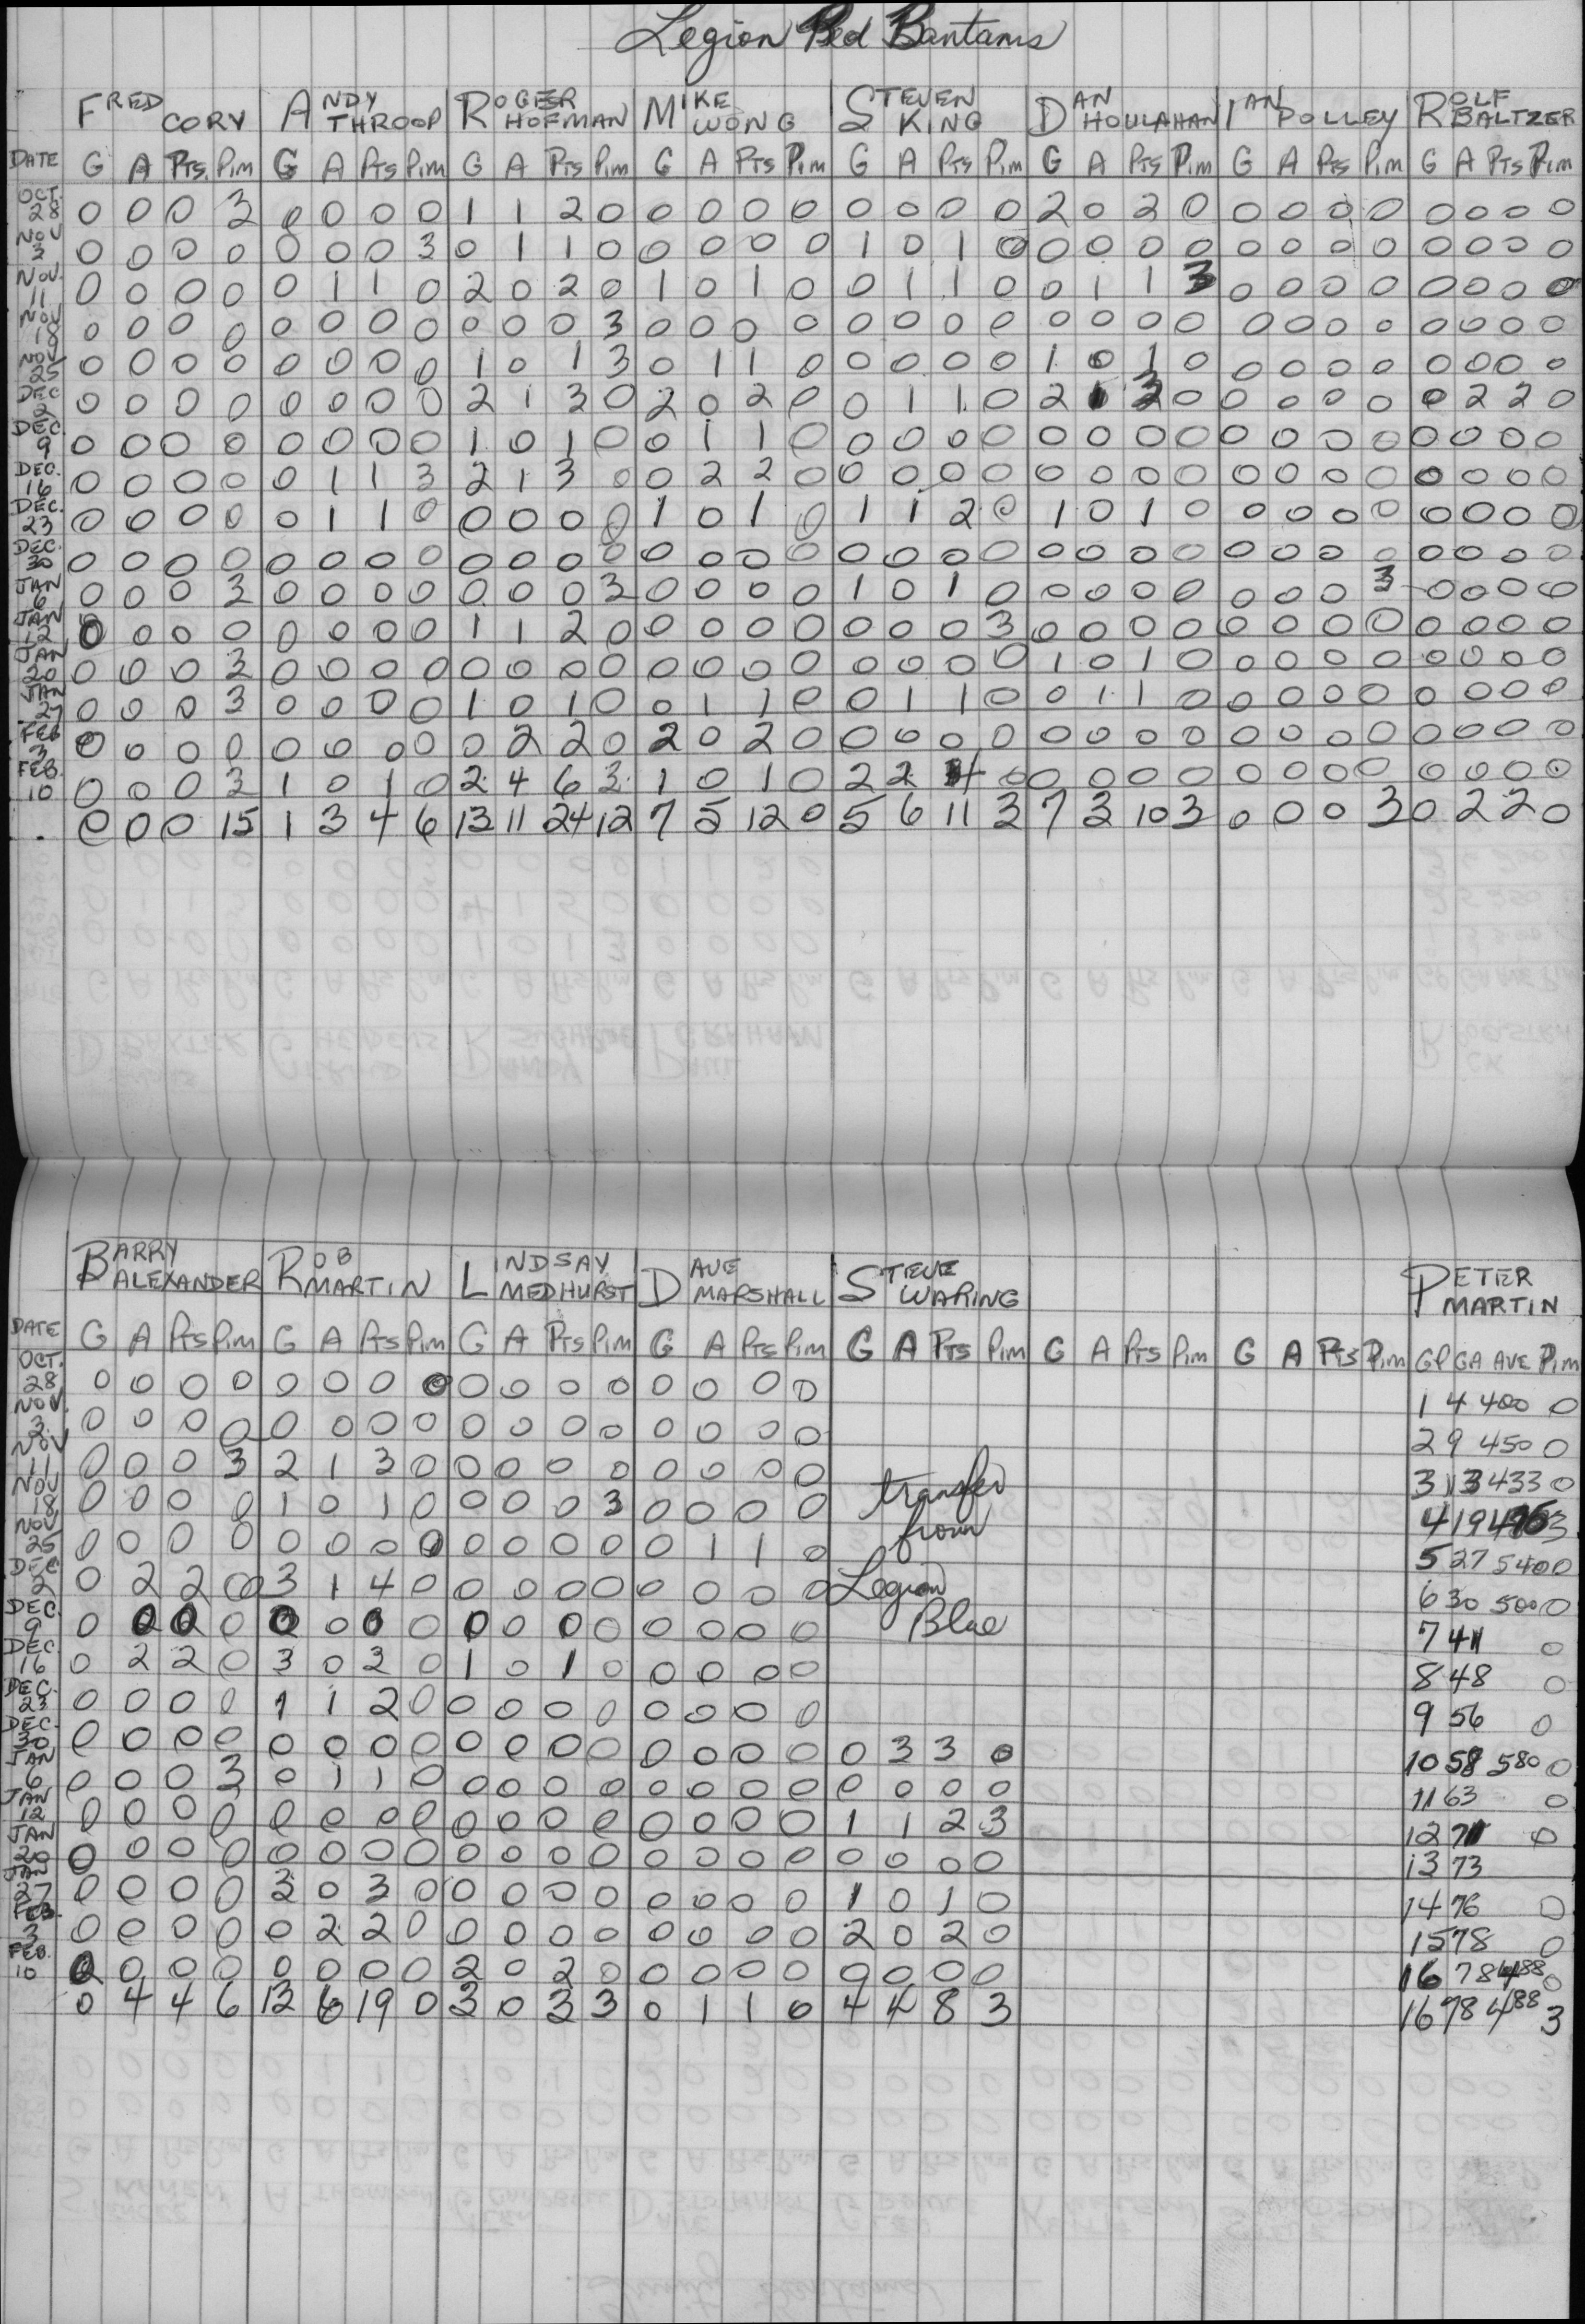 Legion Red Bantams
FRED CORY ANDY THROOP ROGER HOFMAN MIKE WONG STEVEN KING DAN HOULAHAN IAN POLLEY ROLF BALTZER
DATE G A Pts. Pim G A Pts Pim G A Pts Pim G A Pts Pim G A Pts Pim G A Pts Pim G A Pts Pim G A Pts Pim
OCT. 28 0 0 0 3 0 0 0 0 1 1 2 0 0 0 0 0 0 0 0 0 2 0 2 0 0 0 0 0 0 0 0 0
NOV 3 0 0 0 0 0 0 0 3 0 1 1 0 0 0 0 0 1 0 1 0 0 0 0 0 0 0 0 0 0 0 0 0
NOV. 11 0 0 0 0 0 1 1 0 2 0 2 0 1 0 1 0 0 1 1 0 0 1 1 3 0 0 0 0 0 0 0 0
NOV 18 0 0 0 0 0 0 0 0 0 0 0 3 0 0 0 0 0 0 0 0 0 0 0 0 0 0 0 0 0 0 0 0
NOV 25 0 0 0 0 0 0 0 0 1 0 1 3 0 1 1 0 0 0 0 0 1 0 1 0 0 0 0 0 0 0 0 0
DEC 2 0 0 0 0 0 0 0 0 2 1 3 0 2 0 2 0 0 1 1 0 2 1 3 0 0 0 0 0 0 2 2 0
DEC. 9 0 0 0 0 0 0 0 0 1 0 1 0 0 1 1 0 0 0 0 0 0 0 0 0 0 0 0 0 0 0 0 0
DEC. 16 0 0 0 0 0 1 1 3 2 1 3 0 0 2 2 0 0 0 0 0 0 0 0 0 0 0 0 0 0 0 0 0
DEC. 23 0 0 0 0 0 1 1 0 0 0 0 0 1 0 1 0 1 1 2 0 1 0 1 0 0 0 0 0 0 0 0 0
DEC. 30 0 0 0 0 0 0 0 0 0 0 0 0 0 0 0 0 0 0 0 0 0 0 0 0 0 0 0 0 0 0 0 0
JAN 6 0 0 0 3 0 0 0 0 0 0 0 3 0 0 0 0 1 0 1 0 0 0 0 0 0 0 0 3 0 0 0 0
JAN 12 0 0 0 0 0 0 0 0 1 1 2 0 0 0 0 0 0 0 0 3 0 0 0 0 0 0 0 0 0 0 0 0
JAN 20 0 0 0 3 0 0 0 0 0 0 0 0 0 0 0 0 0 0 0 0 1 0 1 0 0 0 0 0 0 0 0 0
JAN 27 0 0 0 3 0 0 0 0 1 0 1 0 0 1 1 0 0 1 1 0 0 1 1 0 0 0 0 0 0 0 0 0
FEB 3 0 0 0 0 0 0 0 0 0 2 2 0 2 0 2 0 0 0 0 0 0 0 0 0 0 0 0 0 0 0 0 0
FEB. 10 0 0 0 3 1 0 1 0 2 4 6 3 1 0 1 0 2 2 4 0 0 0 0 0 0 0 0 0 0 0 0 0
0 0 0 15 1 3 4 6 13 11 24 12 7 5 12 0 5 6 11 3 7 3 10 3 0 0 0 3 0 2 2 0
BARRY ALEXANDER ROB MARTIN LINDSAY MEDHURST DAVE MARSHALL STEVE WARING PETER MARTIN
DATE G A Pts Pim G A Pts Pim G A Pts Pim G A Pts Pim G A Pts Pim G A Pts Pim G A Pts Pim GP GA AVE Pim
OCT. 28 0 0 0 0 0 0 0 0 0 0 0 0 0 0 0 0 1 4 400 0
NOV. 3 0 0 0 0 0 0 0 0 0 0 0 0 0 0 0 0 2 9 450 0
NOV 11 0 0 0 3 2 1 3 0 0 0 0 0 0 0 0 0 transfer 3 13 433 0
NOV 18 0 0 0 0 1 0 1 0 0 0 0 3 0 0 0 0 from 4 19 475 3
NOV 25 0 0 0 0 0 0 0 0 0 0 0 0 0 1 1 0 5 27 540 0
DEC 2 0 2 2 0 3 1 4 0 0 0 0 0 0 0 0 0 Legion 6 30 500 0
DEC. 9 0 0 0 0 0 0 0 0 0 0 0 0 0 0 0 0 Blue 7 41 0
DEC. 16 0 2 2 0 3 0 3 0 1 0 1 0 0 0 0 0 8 48 0
DEC. 23 0 0 0 0 1 1 2 0 0 0 0 0 0 0 0 0 9 56 0
DEC. 30 0 0 0 0 0 0 0 0 0 0 0 0 0 0 0 0 0 3 3 0 10 58 580 0
JAN 6 0 0 0 3 0 1 1 0 0 0 0 0 0 0 0 0 0 0 0 0 11 63 0
JAN 12 0 0 0 0 0 0 0 0 0 0 0 0 0 0 0 0 1 1 2 3 12 71 0
JAN 20 0 0 0 0 0 0 0 0 0 0 0 0 0 0 0 0 0 0 0 0 13 73
JAN 27 0 0 0 0 3 0 3 0 0 0 0 0 0 0 0 0 1 0 1 0 14 76 0
FEB. 3 0 0 0 0 0 2 2 0 0 0 0 0 0 0 0 0 2 0 2 0 15 78 0
FEB. 10 0 0 0 0 0 0 0 0 2 0 2 0 0 0 0 0 0 0 0 0 16 78 488 0
0 4 4 6 13 6 19 0 3 0 3 3 0 1 1 0 4 4 8 3 16 78 488 3